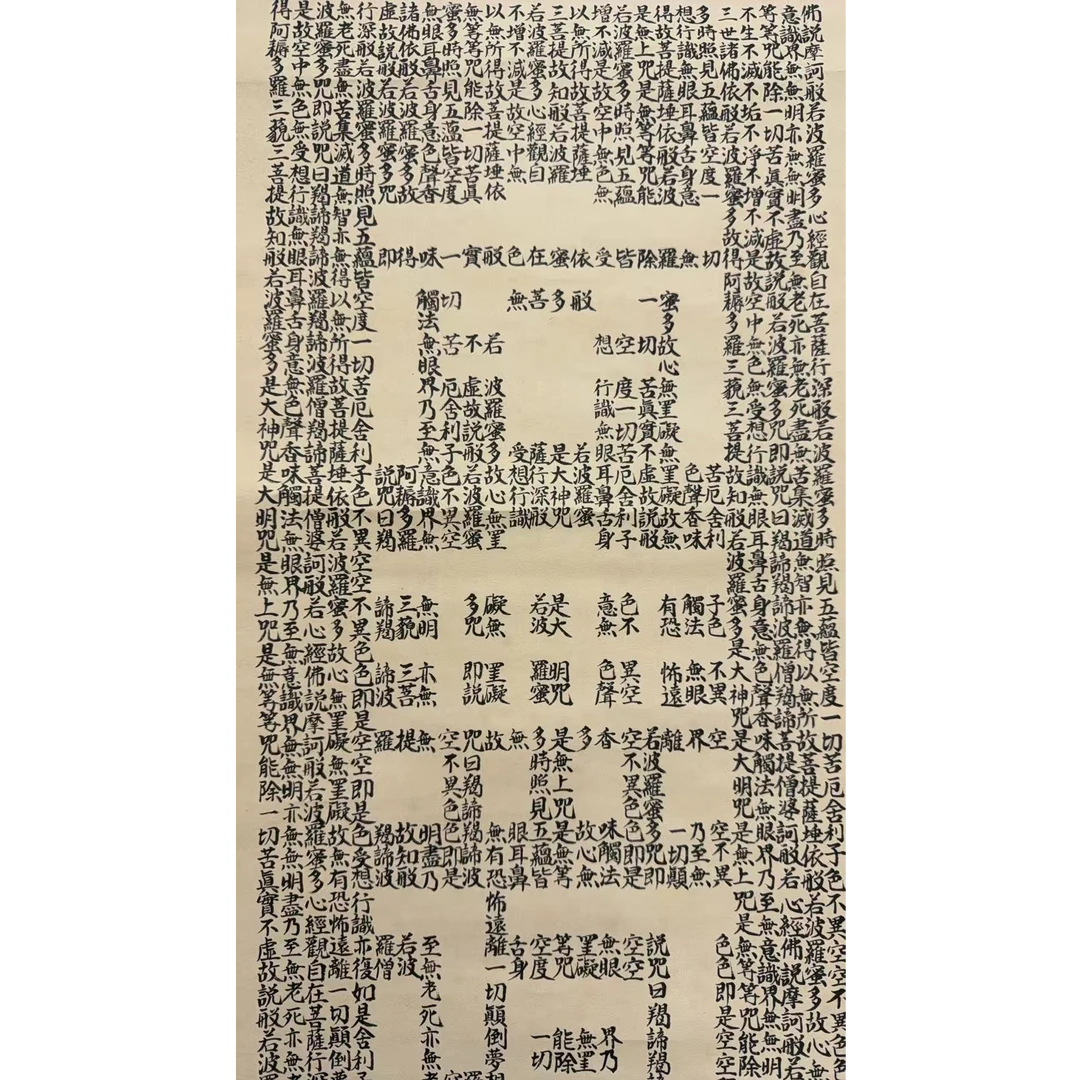 佛説摩訶般若波羅蜜多心經觀自在菩薩行深般若波羅蜜多時照見五蘊皆空度一切苦厄舍利子色不異空空不異色色
意識界無無明亦無無明盡乃至無老死亦無老死盡無苦集滅道無智亦無得以無所故菩提薩埵依般若波羅蜜多故心無
等等咒能除一切苦眞實不虛故説般若波羅蜜多咒即説咒曰羯諦羯諦波羅僧羯諦菩提僧婆訶般若心經佛説摩訶般若
不生不滅不垢不淨不增不減是故空中無色無受想行識無眼耳鼻舌身意無色聲香味觸法無眼界乃至無意識界無無明
三世諸佛依般若波羅蜜多故得阿耨多羅三藐三菩提故知般若波羅蜜多是大神咒是大明咒是無上咒是無等等咒能除
多時照見五蘊皆空度一切苦厄舍利子色不異空空不異色色即是空空
想行識無眼耳鼻舌身意無色聲香味觸法無眼界乃至無
得故菩提薩埵依般若波羅蜜多故心無罣礙無罣礙故無有恐怖遠離一切顛
是無上咒是無等等咒能除一切苦眞實不虛故説般若波羅蜜多咒即説咒曰羯諦羯
若波羅蜜多時照見五蘊皆空度一切苦厄舍利子色不異空空不異色色即是空空
增不減是故空中無色無受想行識無眼耳鼻舌身意無色聲香味觸法無眼界乃
以無所得故菩提薩埵依般若波羅蜜多故心無罣礙無罣
三菩提故知般若波羅蜜多是大神咒是大明咒是無上咒是無等等咒能除
若波羅蜜多心經觀自在菩薩行深般若波羅蜜多時照見五蘊皆空度一切
不增不減是故空中無色無受想行識無眼耳鼻舌身
以無所得故菩提薩埵依般若波羅蜜多故心無罣礙無罣礙故無有恐怖遠離一切顛倒夢想
無等等咒能除一切苦眞實不虛故説般若波羅蜜多咒即説咒曰羯諦羯諦波
蜜多時照見五蘊皆空度一切苦厄舍利子色不異空空不異色色即是空
無眼耳鼻舌身意色聲香味觸法無眼界乃至無意識界無無明亦無無明盡乃至無老死亦無老
諸佛依般若波羅蜜多故得阿耨多羅三藐三菩提故知般若波
虛故説般若波羅蜜多咒即説咒曰羯諦羯諦波羅羯諦波羅僧
行深般若波羅蜜多時照見五蘊皆空度一切苦厄舍利子色不異空空不異色色即是空空即是色受想行識亦復如是舍利子
無老死盡無苦集滅道無智亦無得以無所得故菩提薩埵依般若波羅蜜多故心無罣礙無罣礙故無有恐怖遠離一切顛倒夢
波羅蜜多咒即説咒曰羯諦羯諦波羅羯諦波羅僧羯諦菩提僧婆訶般若心經佛説摩訶般若波羅蜜多心經觀自在菩薩行深
是故空中無色無受想行識無眼耳鼻舌身意無色聲香味觸法無眼界乃至無意識界無無明亦無無明盡乃至無老死亦無老
得阿耨多羅三藐三菩提故知般若波羅蜜多是大神咒是大明咒是無上咒是無等等咒能除一切苦眞實不虛故説般若波